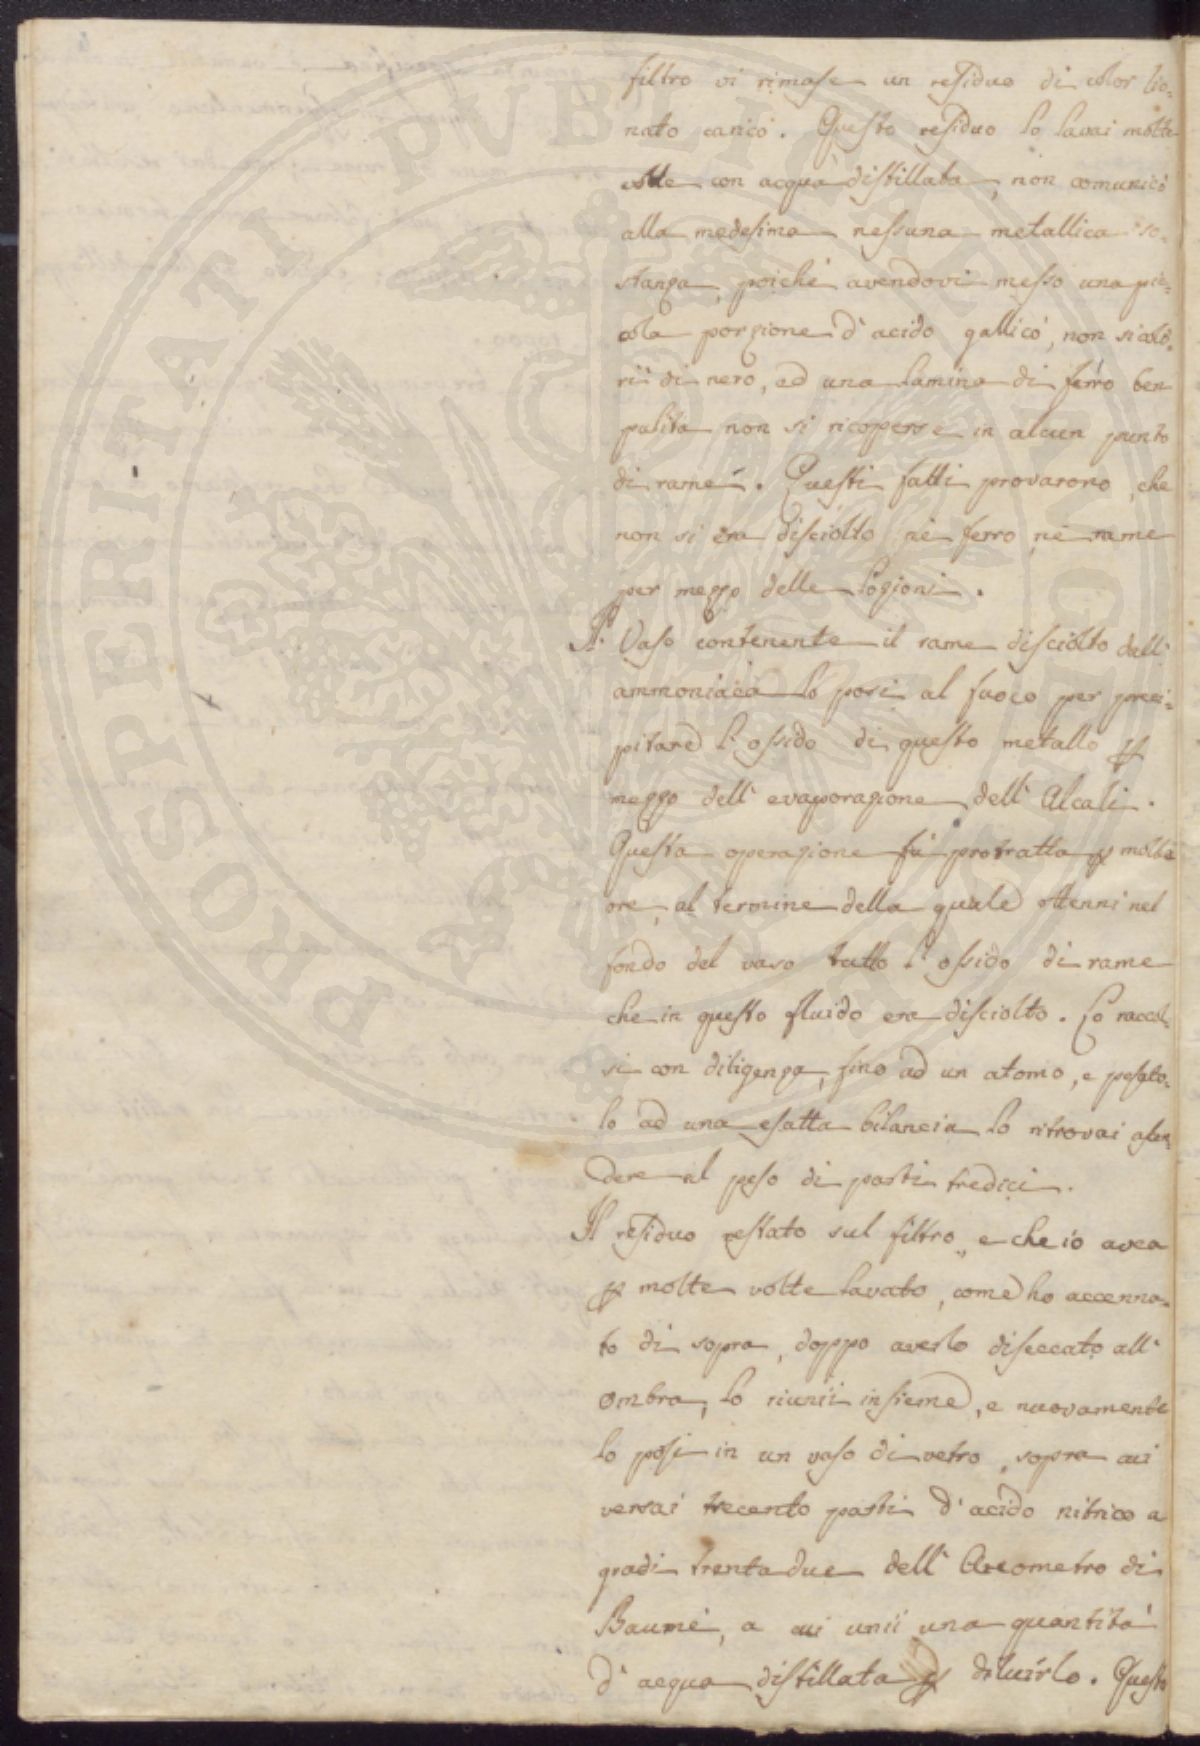 filtro vi rimase un residuo di color lio-
nato carico. Questo residuo lo lavai molte
volte con acqua distillata, non comunicò
alla medesima nessuna metallica so-
stanza, poiché avendovi messo una pic-
cola porzione d'acido gallico, non si colo-
rii di nero, ed una lamina di ferro ben
polita non si ricoperse in alcun punto
di rame. Questi fatti provarono, che
non si era disciolto né ferro né rame
per mezzo delle lozioni.
Il Vaso contenente il rame disciolto dall'
ammoniaca lo posi al fuoco per preci-
pitare l'ossido di questo metallo p
mezzo dell'evaporazione dell'Alcali.
Questa operazione fù protratta p molte
ore, al termine della quale ottenni nel
fondo del vaso tutto l'ossido di rame
che in questo fluido era disciolto. Lo raccol-
si con diligenza, fino ad un atomo, e pesato-
lo ad una esatta bilancia lo ritrovai ascen-
dere al peso di parti tredici.
Il residuo restato sul filtro, e che io avea
p molte volte lavato, come ho accenna-
to di sopra, doppo averlo diseccato all'
ombra, lo riunii insieme, e nuovamente
lo posi in un vaso di vetro, sopra cui
versai trecento parti d'acido nitrico a
gradi trentadue dell'Areometro di
Baumé, a cui unii una quantità
d'acqua distillata p diluirlo. Questo
PROSPERITATI PUBLICAE AUGENDAE